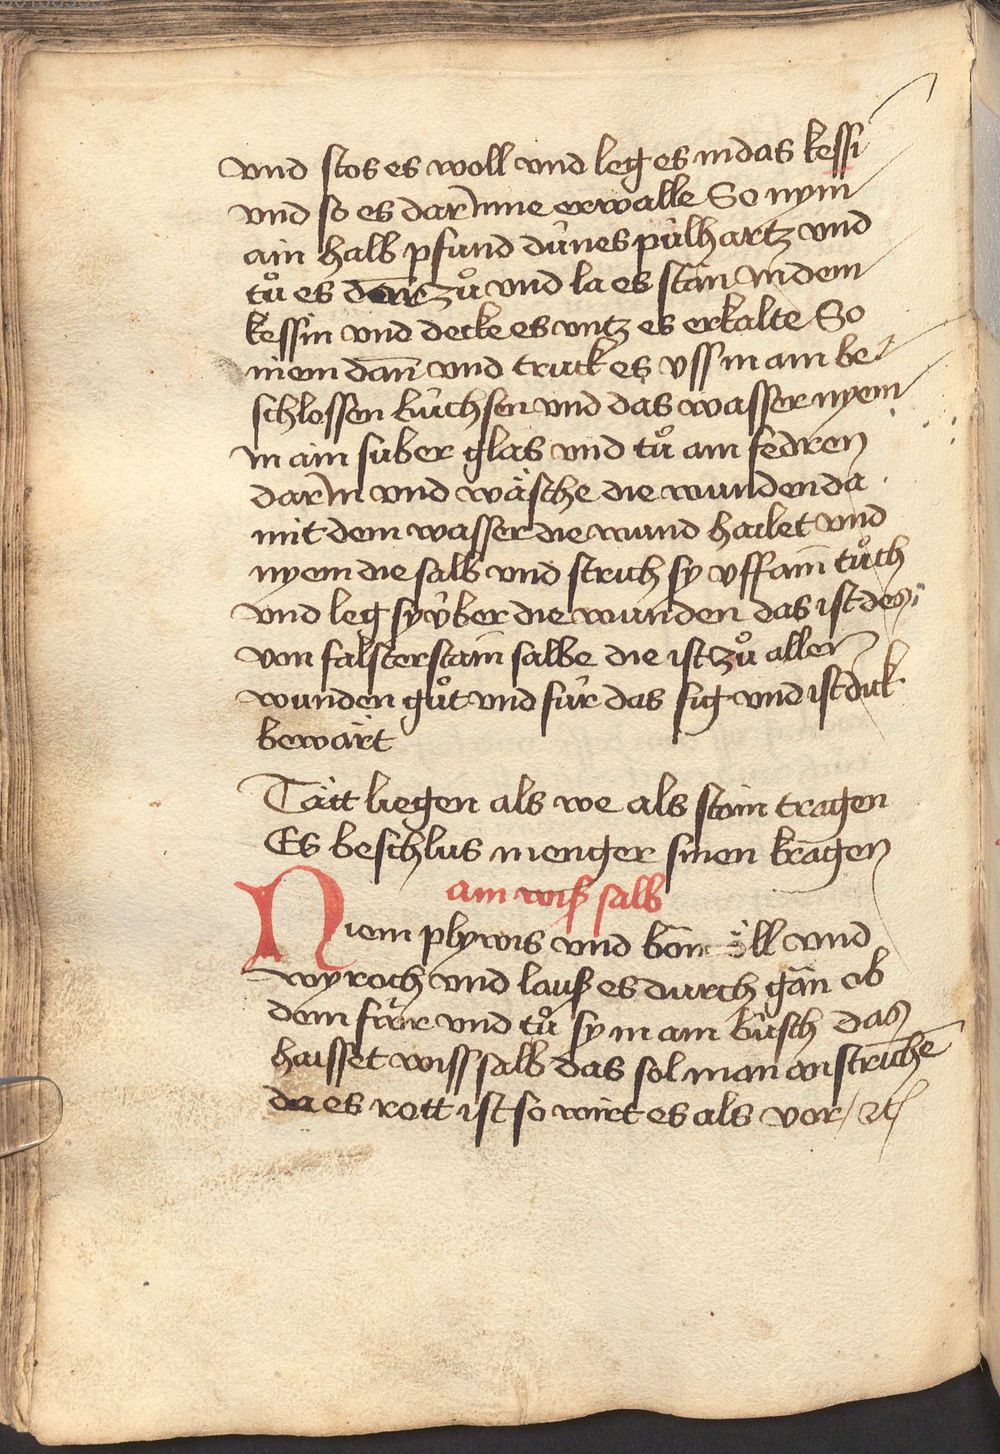 vnd stos es woll vnd leg es in das kessi
vnd so es dar Inne erwalle So nym
ain halb pfund dúnes púlhartz vnd
tuͦ es dar zuͦ vnd la es stan In dem
kessin vnd decke es vntz es erkalte So
niem dan̄ vnd truck es vss in ain be
schlossen búchsen vnd das wasser nyem
In ain suber glas vnd tuͦ ain fedren
dar In vnd wäsche die wunden da
mit dem wasser die wund hailet vnd
nyem die salb vnd strich sy vff ain̄ tuͦch
vnd leg sy v́ber die wunden das ist des
von falsterstain̄ salbe die ist zuͦ aller
wunden guͦt vnd fúr das fig vnd ist dick
bewärt
Tätt liegen als we als stain tragen
Es beschlus menger sinen kragen
ain wiß salb
Niem plywis vnd böm öll vnd
wyroch vnd lauß es durch gän ob
dem fúr vnd tuͦ sy in ain búsch das
haisset wiss salb das sol man an striche̅
da es rott ist so wirt es als vor / etc